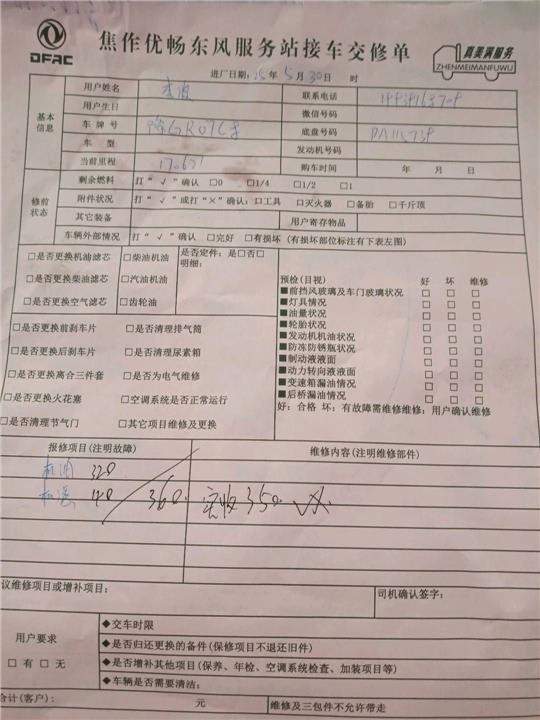 DFAC
焦作优畅东风服务站接车交修单
真美满服务
ZHENMEIMANFUWU
进厂日期: 25年5月30日 时
基本信息
用户姓名 李波 联系电话
用户生日 微信号码
车牌号 底盘号码
车型 发动机号码
当前里程 购车时间 年 月 日
修前状态
剩余燃料 打“√”确认 □0 □1/4 □1/2 □1
附件状况 打“√”或打“×”确认: □工具 □灭火器 □备胎 □千斤顶
其它装备 用户寄存物品
车辆外部情况 打“√”确认 □完好 □有损坏 (有损坏部位标注有下表左图)
□是否更换机油滤芯 □柴油机油 是否定件: 是□否□
明细:
□是否更换柴油滤芯 □汽油机油
□是否更换空气滤芯 □齿轮油
预检(目视) 好 坏 维修
■前挡风玻璃及车门玻璃状况 □ □ □
■灯具情况 □ □ □
■油量状况 □ □ □
■轮胎状况 □ □ □
■发动机机油状况 □ □ □
■防冻防锈瓶状况 □ □ □
■制动液液面 □ □ □
■动力转向液液面 □ □ □
■变速箱漏油情况 □ □ □
■后桥漏油情况 □ □ □
好: 合格 坏: 有故障需维修维修; 用户确认维修
□是否更换前刹车片 □是否清理排气筒
□是否更换后刹车片 □是否清理尿素箱
□是否更换离合三件套 □是否为电气维修
□是否更换火花塞 □空调系统是否正常运行
□是否清理节气门 □其它项目维修及更换
报修项目(注明故障) 维修内容(注明维修部件)
机油 320
机滤 40 360. 实收350.
议维修项目或增补项目: 司机确认签字:
用户要求
□有 □无
◆交车时限
◆是否归还更换的备件(保修项目不退还旧件)
◆是否增补其他项目(保养、年检、空调系统检查、加装项目等)
◆车辆是否需要清洁:
合计(客户): 元 维修及三包件不允许带走